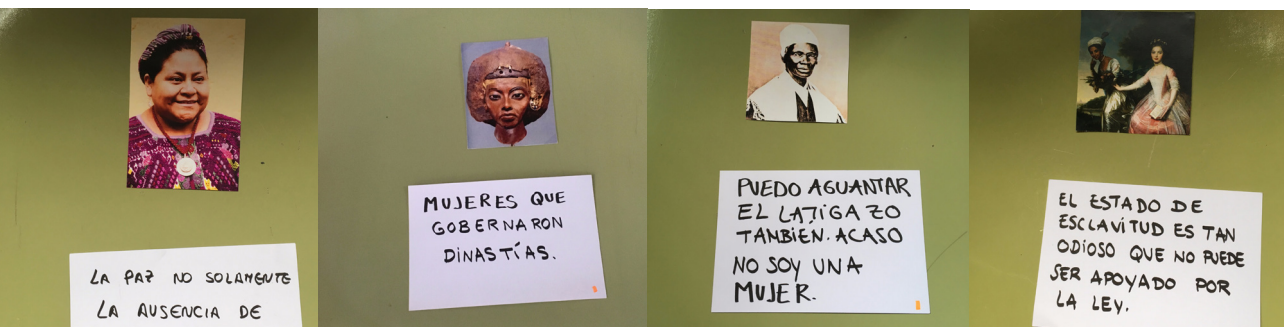 LA PAZ NO SOLAMENTE
LA AUSENCIA DE
MUJERES QUE
GOBERNARON
DINASTÍAS.
PUEDO AGUANTAR
EL LATIGAZO
TAMBIÉN. ACASO
NO SOY UNA
MUJER.
EL ESTADO DE
ESCLAVITUD ES TAN
ODIOSO QUE NO PUEDE
SER APOYADO POR
LA LEY.